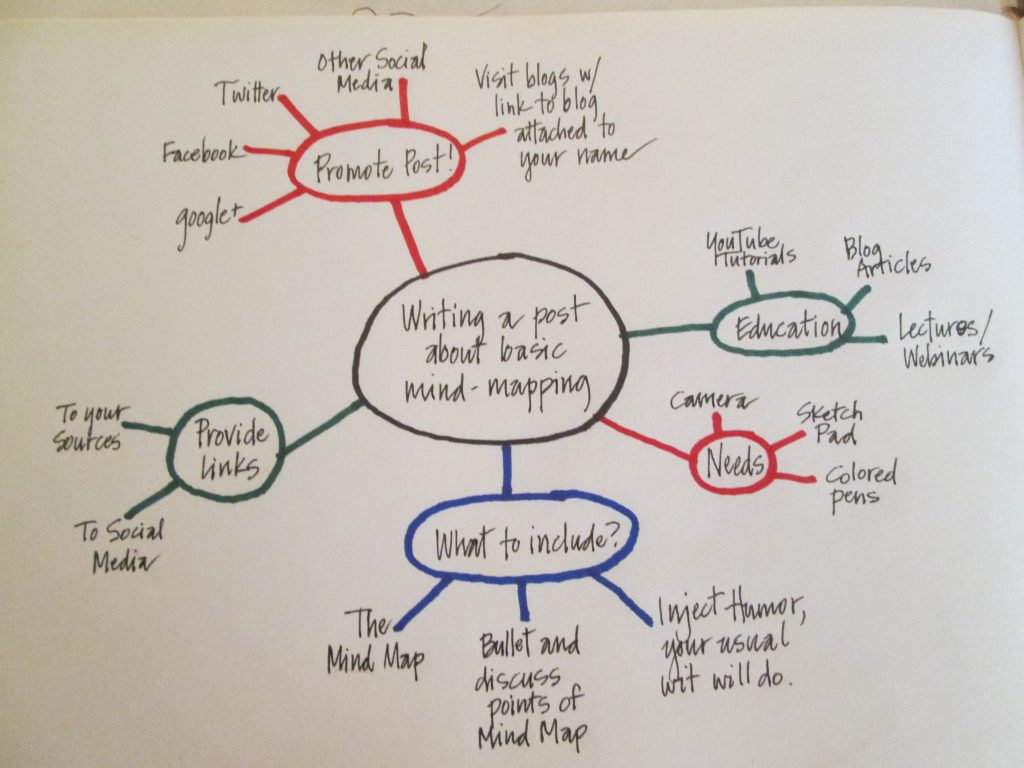 Other Social
Media
Twitter
Facebook
google+
Promote Post!
Visit blogs w/
link to blog
attached to
your name
Writing a post
about basic
mind-mapping
YouTube
Tutorials
Blog
Articles
Education
Lectures/
Webinars
Camera
Sketch
Pad
Needs
Colored
pens
To your
Sources
Provide
Links
To Social
Media
What to include?
The
Mind Map
Bullet and
discuss
points of
Mind Map
Inject Humor,
your usual
wit will do.